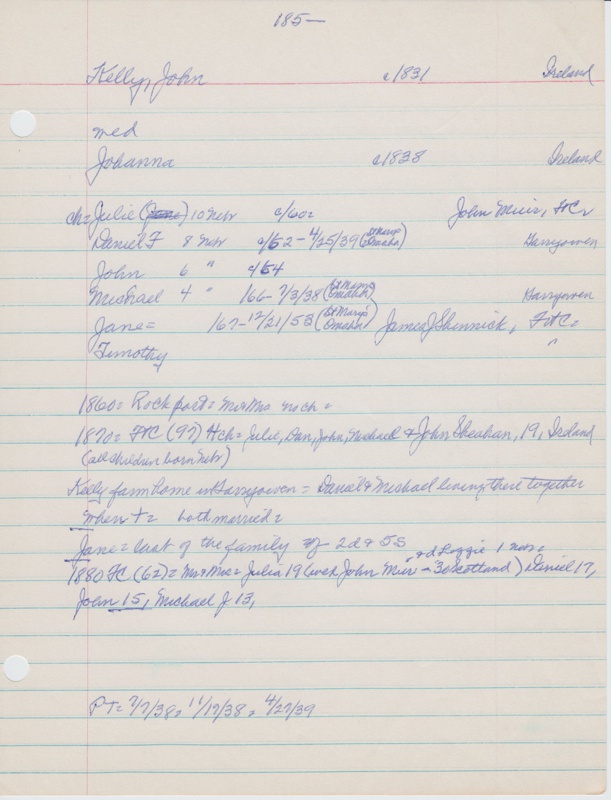 185—
Kelly, John c1831 Ireland
med
Johanna c1838 Ireland
ch= Julie (Jane) 10 Nebr c/60= John Muir, FC=
Daniel F 8 Nebr c/62 - 4/25/39 (St Marys Omaha) Garryowen
John 6 " c/64
Michael 4 " /66- 7/3/38 (St Marys Omaha) Garryowen
Jane= /67-12/21/58 (St Marys Omaha) James J Shinnick, FtC=
Timothy "
1860= Rockport= Mr+Mrs noch=
1870= FtC (97) 4ch= Julie, Dan, John, Michael + John Sheahan, 19, Ireland
(all children born Nebr)
Kelly farm home in Garryowen= Daniel + Michael living there together
when += both married=
Jane= last of the family of 2d + 5s
+ d Maggie 1 Nebr=
1880 FC (62)= Mr+Mrs= Julia 19 (wed John Muir - 30 Scotland) Daniel 17,
John 15, Michael J 13,
PT= 7/7/38= 11/17/38= 4/27/39